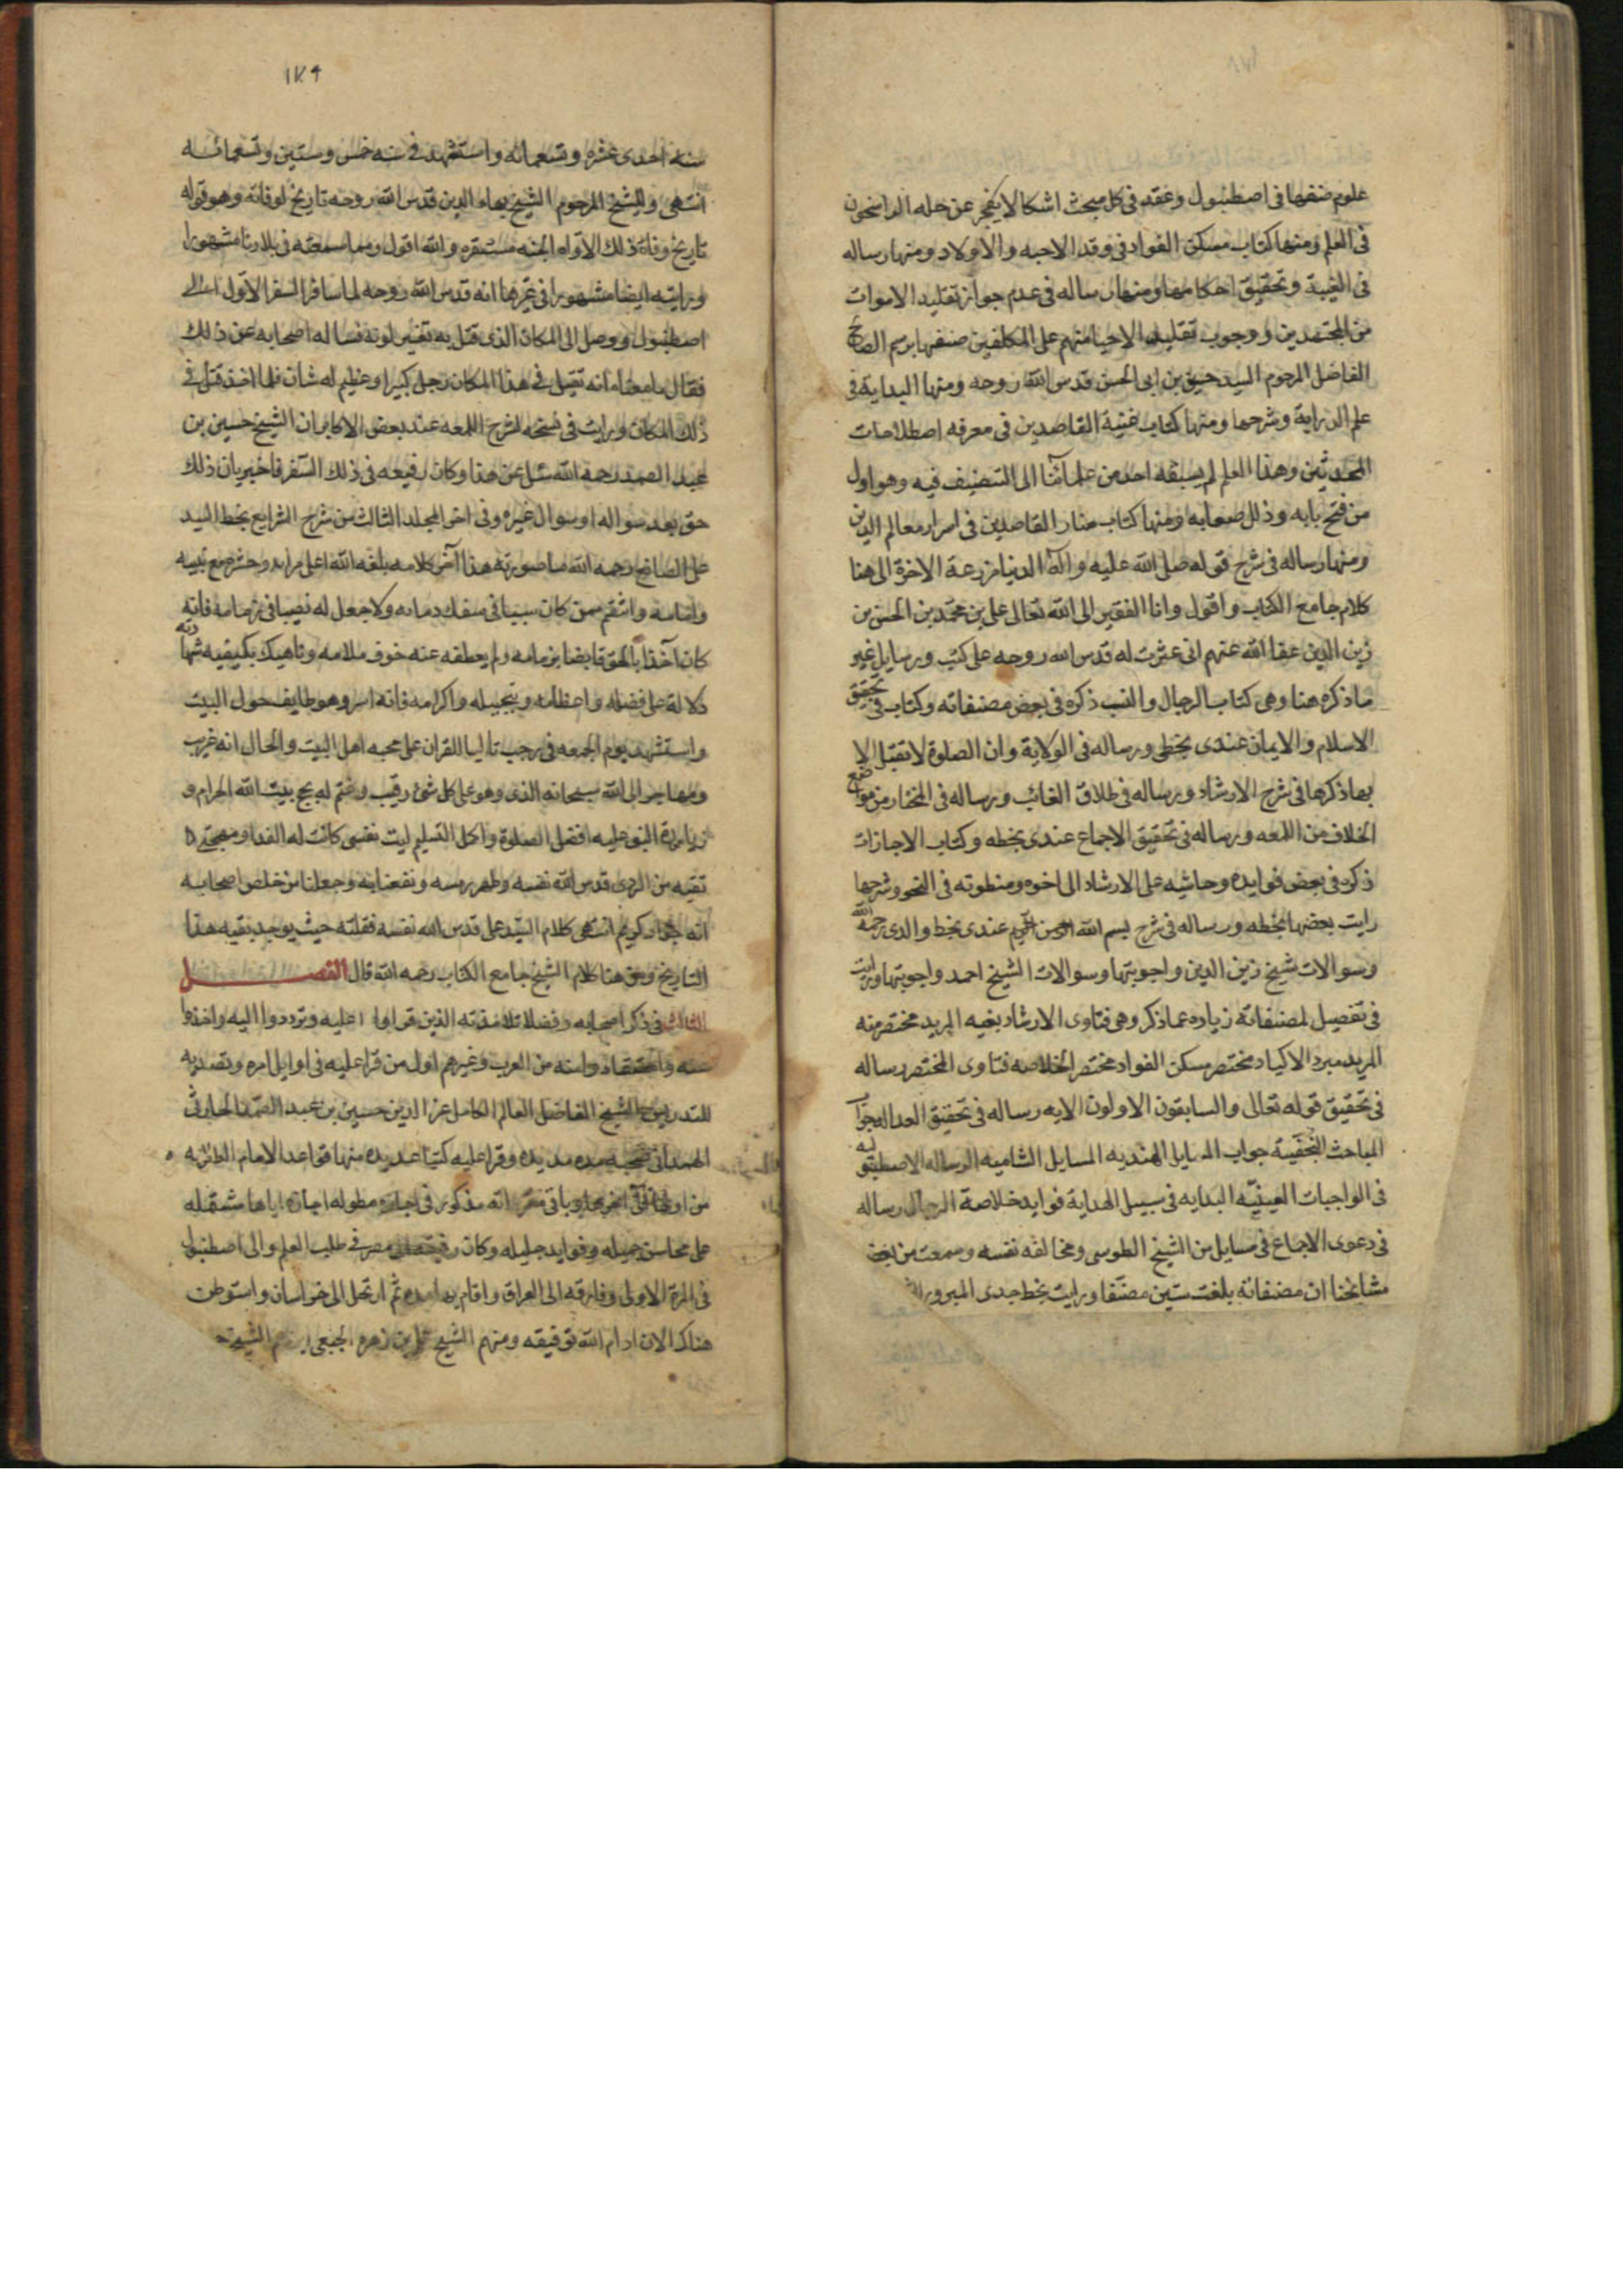 علوم صنفها فى اصطنبول وعقد فى كل مبحث اشكالا يفجر عن حله الراسخون
فى العلم ومنها كتاب مسكن الفواد فى وقد الاحبه والاولاد ومنها رساله
فى الغيبة وتحقيق احكامها ومنها رساله فى عدم جواز تقليد الاموات
من المجتهدين ووجوب تقليد الاحيا منهم على المكلفين صنفها برسم الصالح
الفاضل المرحوم السيد حسين بن ابى الحسن قدس الله روحه ومنها البداية فى
علم الدراية وشرحها ومنها كتاب غنية القاصدين فى معرفه اصطلاحات
المحدثين وهذا العلم لم يسبقه احد من علمائنا الى التصنيف فيه وهو اول
من فتح بابه وذلل صعابه ومنها كتاب منار القاصدين فى اسرار معالم الدين
ومنها رساله فى شرح قوله صلى الله عليه واله الدنيا مزرعة الاخرة الى هنا
كلام جامع الكتاب واقول وانا الفقير الى الله تعالى على بن محمد بن الحسن بن
زين الدين عفا الله عنهم انى عثرت له قدس الله روحه على كتب ورسايل غير
ما ذكره هنا وهى كتاب الرجال والنسب ذكره فى بعض مصنفاته وكتاب فى تحقيق
الاسلام والايمان عندى بخطى ورساله فى الولاية وان الصلوة لا تقبل الا
بها ذكرها فى شرح الارشاد ورساله فى طلاق الغائب ورساله فى المختار من مواضع
الخلاف من اللمعه ورساله فى تحقيق الاجماع عندى بخطه وكتاب الاجازات
ذكره فى بعض فوايده وحاشيه على الارشاد الى اخوه ومنظوته فى النحو وشرحها
رايت بعضها بخطه ورساله فى شرح بسم الله الرحمن الرحيم عندى بخط والدى رحمه الله
وسوالات شيخ زين الدين واجوبتها وسوالات الشيخ احمد واجوبتها ورايت
فى تفصيل لمصنفاته زياده عما ذكر وهى فتاوى الارشاد بغيه المريد مختصر منه
المريد مبرد الاكباد مختصر مسكن الفواد مختصر الخلاصه فتاوى المختصر رساله
فى تحقيق قوله تعالى والسابقون الاولون الايه رساله فى تحقيق العداله جواب
المباحث النجفية جواب المسايل الهنديه المسايل الشاميه الرساله الاصطنبوليه
فى الواجبات العينيه البدايه فى سبيل الهداية فوايد خلاصة الرجال رساله
فى دعوى الاجماع فى مسايل من الشيخ الطوسى ومخالفه نفسه وسمعت من بعض
مشايخنا ان مصنفاته بلغت ستين مصنفا ورايت بخط جدى المبرور
١٧٩
سنه احدى عشره وتسعمائه واستشهد فى سنه خمس وستين وتسعمائه
انتهى وللشيخ المرحوم الشيخ بهاء الدين قدس الله روحه تاريخ لوفاته وهو قوله
تاريخ وفاة ذلك الاواه الجنه مستقره والله اقول ومما سمعته فى بلادنا مشهورا
ورايته ايضا مشهورا فى غيرها انه قدس الله روحه لما سافر السفر الاول الى
اصطنبول ووصل الى المكان الذى قتل به تغير لونه فساله اصحابه عن ذلك
فقال ما معناه انه تقيل فى هذا المكان رجل كبير او عظيم له شان فلما اخذ قتل فى
ذلك المكان ورايت فى نسخه لشرح اللمعه عند بعض الاكابر ان الشيخ حسين بن
عبد الصمد رحمه الله سئل عن هذا وكان رفيعه فى ذلك السفر فاخبر بان ذلك
حق بعد سواله او سوال غيره وفى اخر المجلد الثالث من شرح الشرايع بخط السيد
على الصايغ رحمه الله ما صورته هذا آخر كلامه بلغه الله اعلى مرامه وحشره مع نبيه
وامامه وانتقم ممن كان سببا فى سفك دمائه ولا جعل له نصيبا فى زمامه فانه
كان آخذا بالحق قابضا بزمامه ولم يعطفه عنه خوف ملامه وناهيك بكيفيه شهادته
دلالة على فضله واعظامه وتبجيله واكرامه فانه اسر وهو طايف حول البيت
واستشهد يوم الجمعه فى رجب تاليا للقران على محبه اهل البيت والحال انه غريب
ومهاجر الى الله سبحانه الذى وهو على كل شئ رقيب وختم له بحج بيت الله الحرام و
زيارة النبى عليه افضل الصلوة واكمل التسليم ليت نفسى كانت له الفدا ومهجتى
تقيه من الردى قدس الله نفسه وطهر رمسه ونفعنا به وجعلنا من خلص اصحابه
انه جواد كريم انتهى كلام السيد على قدس الله نفسه فقلته حيث يوجد بقيه هذا
التاريخ ومن هنا كلام الشيخ جامع الكتاب رحمه الله قال الفصل
الثالث فى ذكر اصحابه وفضلا تلامذته الذين قراوا عليه وترددوا اليه واخذوا
عنه واستفادوا منه من العرب وغيرهم اول من قرا عليه فى اوايل امره وتصديه
للتدريس الشيخ الفاضل العالم الكامل عز الدين حسين بن عبد الصمد الحارثى
الهمدانى صحبه مده مديده وقرا عليه كتبا عديده منها قواعد الامام العلامه
من اولها الى اخرها وباقى مقرواته مذكور فى اجازه مطوله اجازه اياها مشتمله
على محاسن جميله وفوايد جليله وكان رفيقه الى مصر فى طلب العلم والى اصطنبول
فى المرة الاولى وفارقه الى العراق واقام بها مده ثم ارتحل الى خراسان واستوطن
هناك الان ادام الله توفيقه ومنهم الشيخ على بن زهره الجبعى ابن عم الشيخ